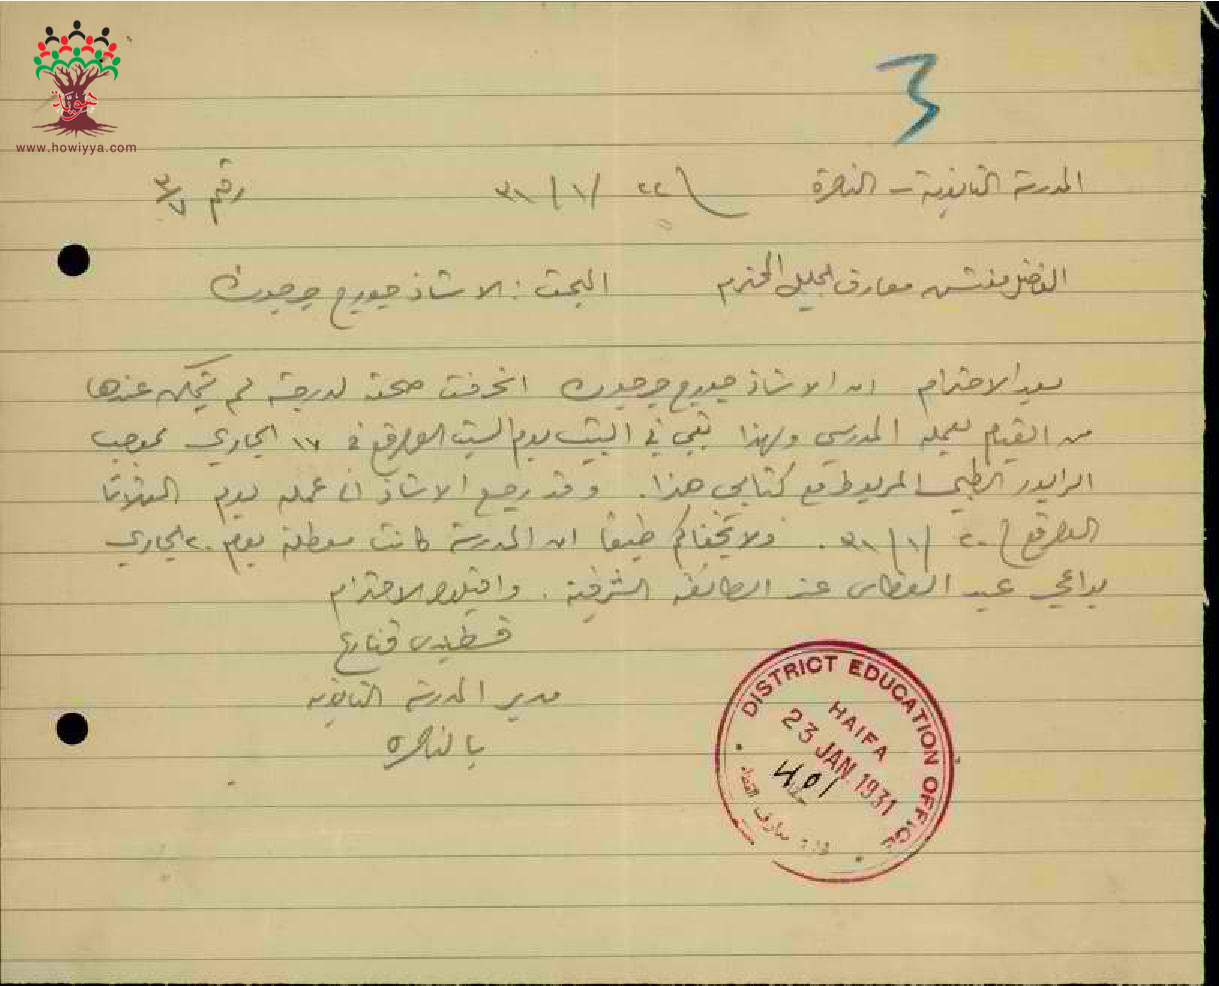 هوية
www.howiyya.com
3
المدرسة الثانوية - الناصرة ٢٢/١/٣١ رقم ٣/٧
الفاضل مفتش معارف الجليل المحترم المبحث: الاستاذ جورج
بعيد الاحترام ان الاستاذ جورج انحرفت صحته لدرجة لم يتمكن عندها
من القيام بعمله المدرسي ولهذا بقي في البيت يوم السبت الواقع في ١٧ الجاري بموجب
الرابور الطبي المربوط مع كتابي هذا. وقد رجع الاستاذ الى عمله يوم الثلاثا
الواقع / ٢٠/١/٣١. ولا يخفاكم طبعًا ان المدرسة كانت معطلة يوم ٢٠ الجاري
بداعي عيد الغطاس عند الطائفة الشرقية. واقبلوا الاحترام
قسطندي قنازع
مدير المدرسة الثانوية
بالناصرة
DISTRICT EDUCATION OFFICE
HAIFA
23 JAN. 1931
401
حيفا
معارف القضاء